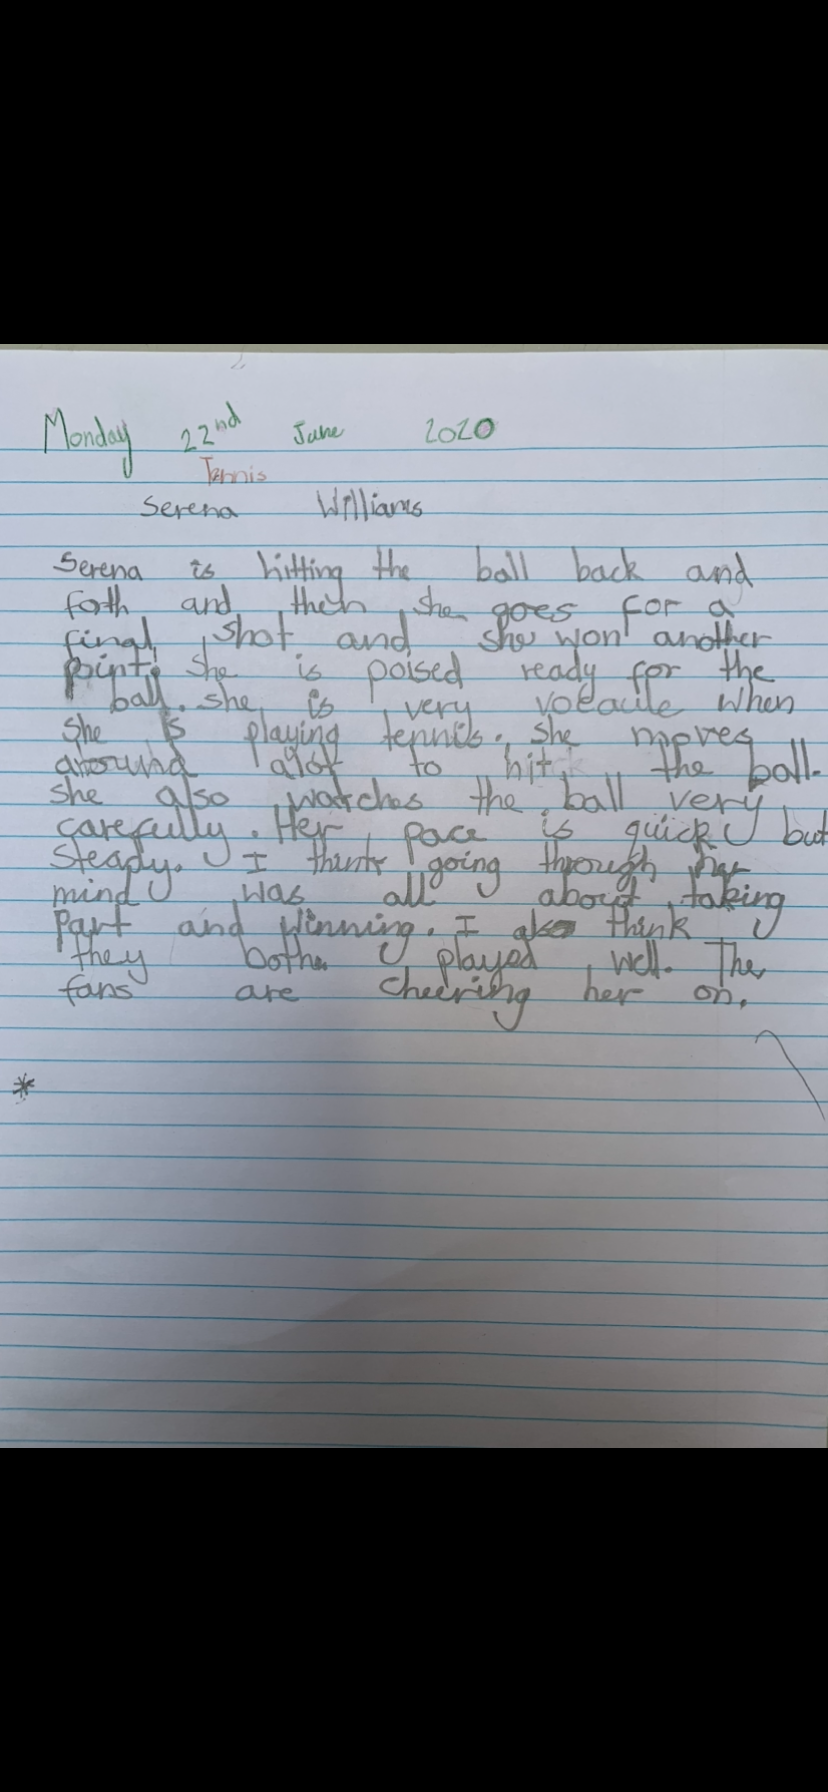 Monday 22nd June 2020
Tennis
Serena Williams
Serena is hitting the ball back and
forth and then she goes for a
final shot and she won another
point. She is poised ready for the
ball. she is very when
She is playing tennis. she moves
around alot to hit the ball.
She also watches the ball very
carefully. Her pace is quick but
Steady. I think going through her
mind was all about taking
Part and Winning. I also think
they both played well. The
fans are cheering her on.
*